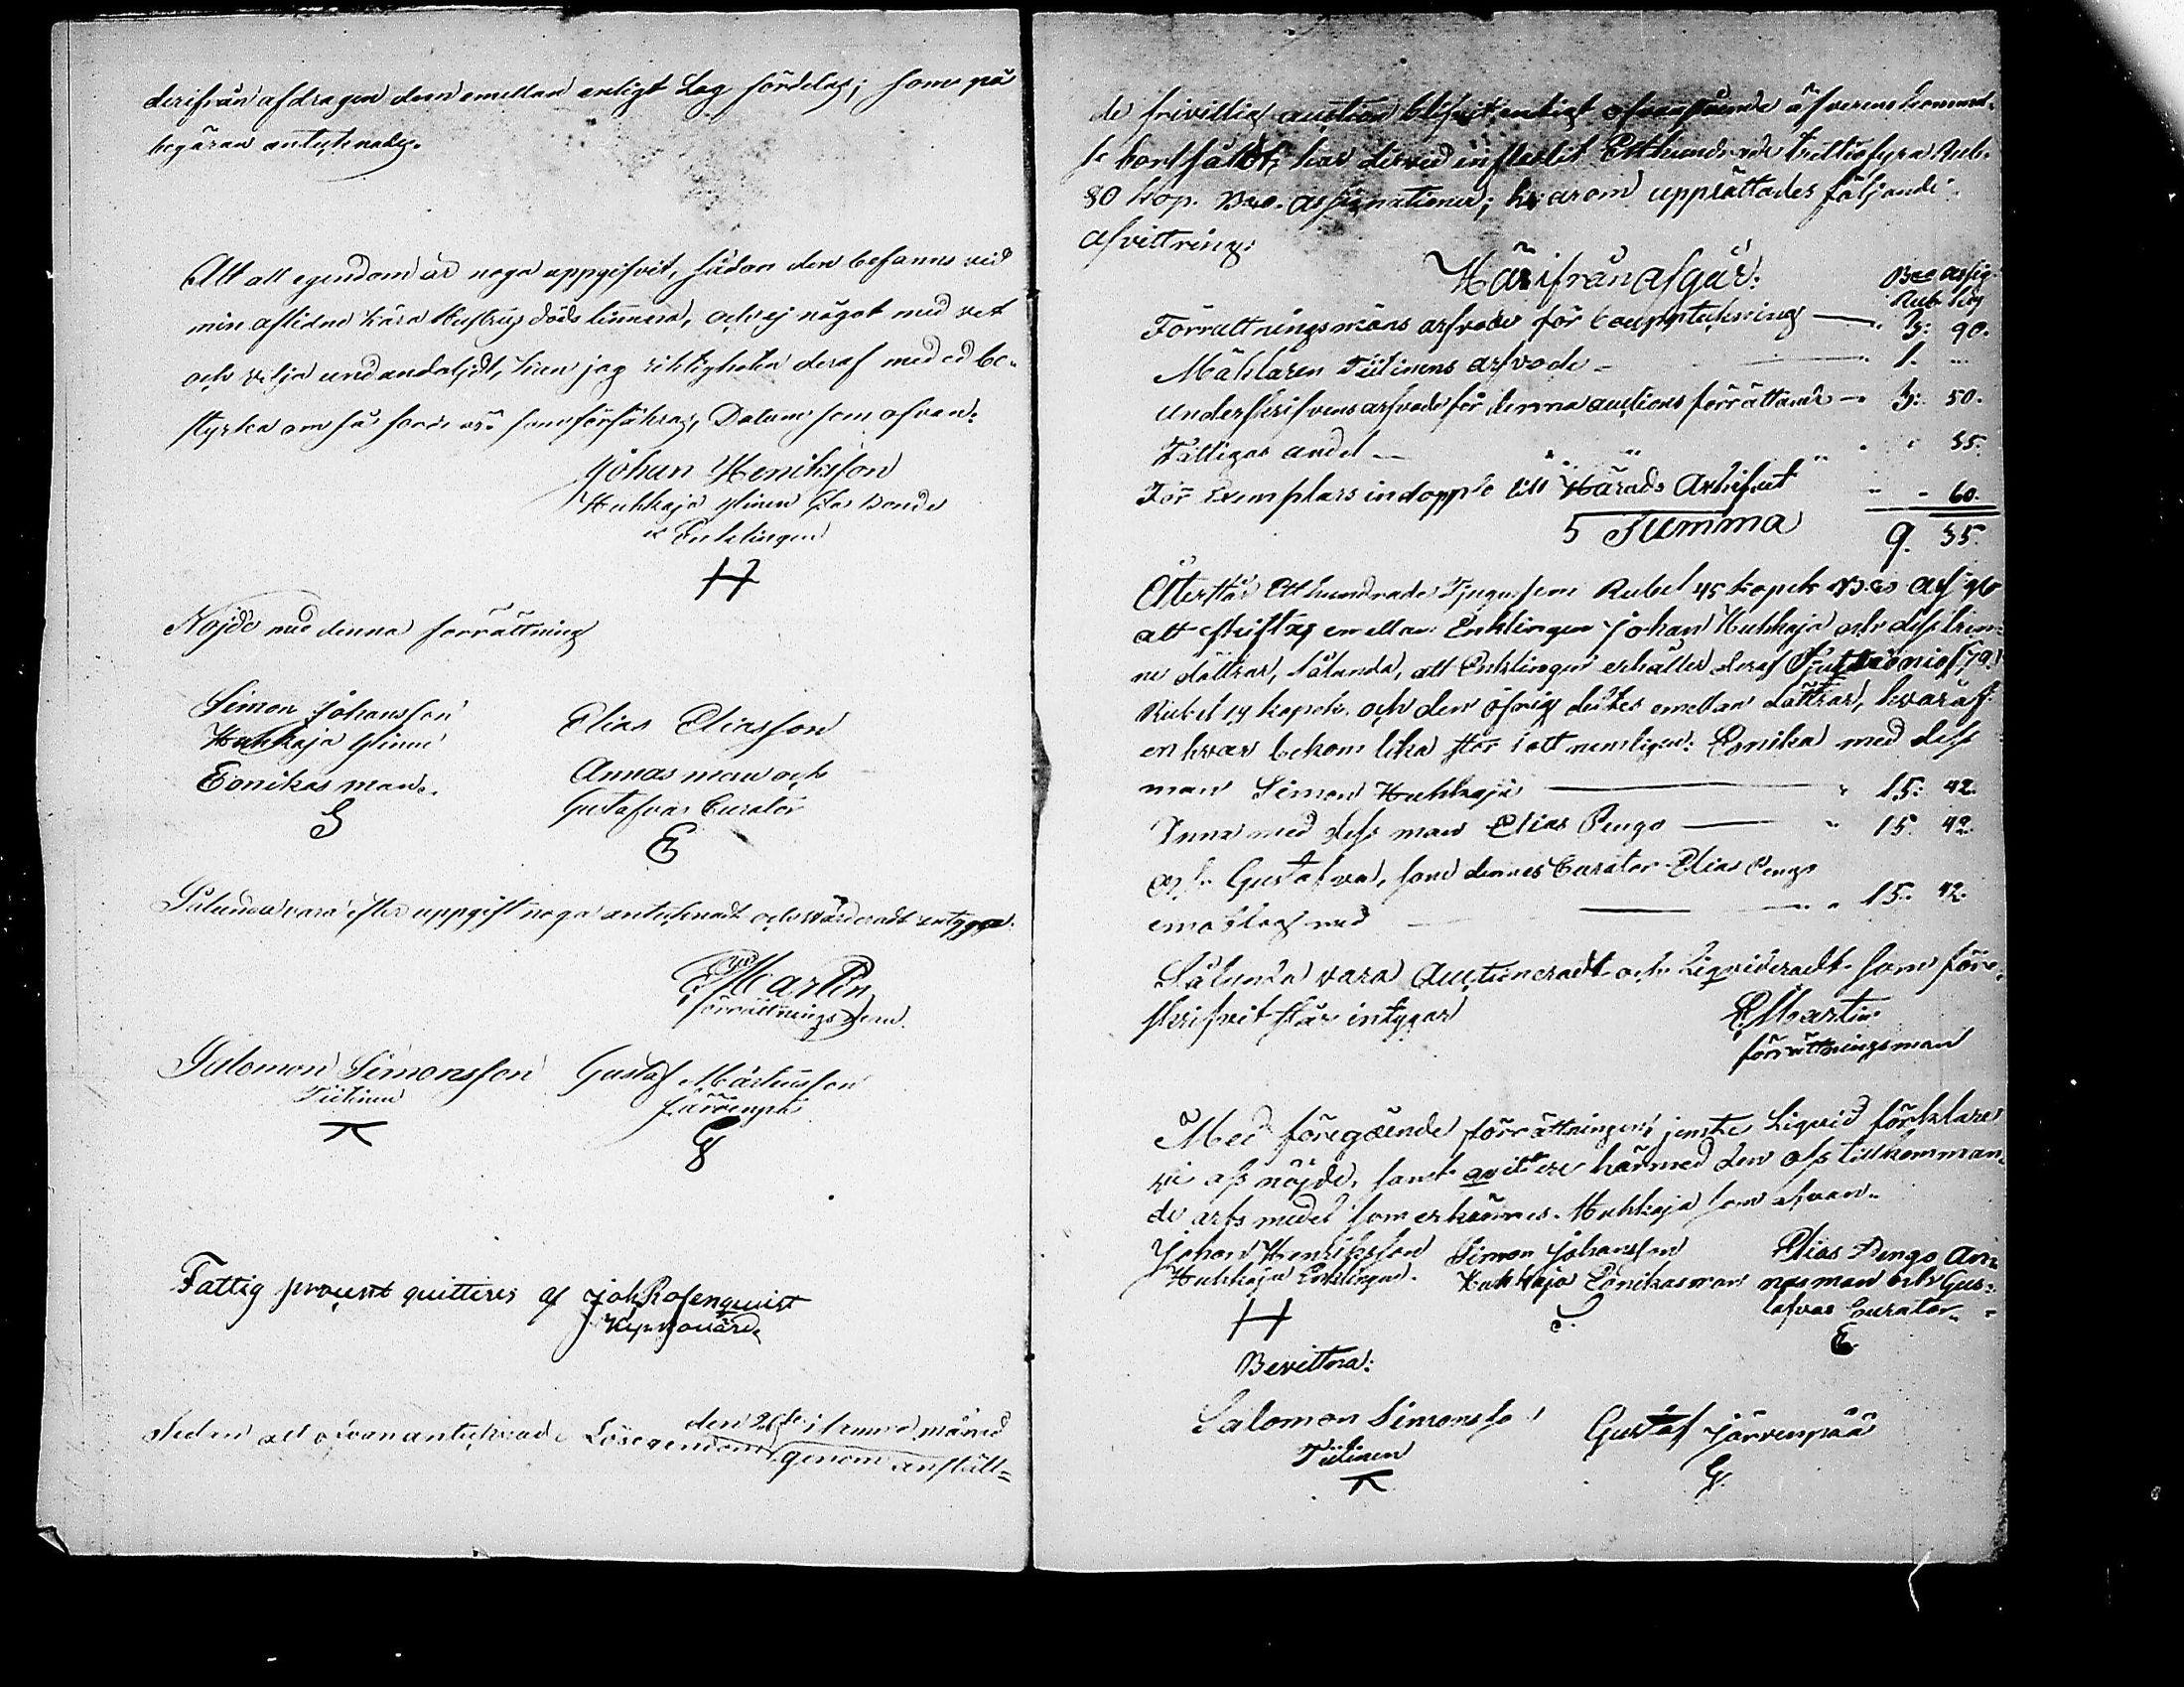 derifrån afdragen dem emellan enligt Lag fördelas; som på
begäran antecknades.
Att all egendom är noga uppgifvit, sådan den befanns vid
min aflidne kära Hustrus döds timma, och ej något med vet
och vilja undandoljdt, kan jag riktigheten deraf med ed be-
styrka om så fordras som försäkras, Datum som ofvan.
Johan Henriksson
Huhkaja Bonde
Enklingen
H
Nöjde med denna förrättning
Simon Johansson
Huhkaja
Eonikas man.
S
Elias Eliasson
Annas man och
Gustafvas Curator
E
Sålunda vara efter uppgift noga antecknadt och värderadt intyga.
Martin
förrättningsman.
Salomon Simonsson
Tiitinen
Gustaf Mårtensson
Järvenpää
G
Fattig procent quitteres af Joh Rosenqvist
Sedan all ofvanantecknade Lösegendom den 26te i denna månad
genom anställ-
de frivillig auction blifvit enligt ofvanstående öfverenskommel-
se bortsåldt, har dervid influtit Etthundrade trettiofyra Rub.
80 kop. B:co assignationer; hvarom upprättades följande
afvittring:
Härifrån afgår:
B:co assig.
Rub. kop
Förrättningsmans arfvode för bouppteckning 3: 90.
Mäklaren Tiitinens arfvode 1. "
Underskrifvens arfvode för denna auctions förrättande 3: 50.
Fattigas andel " 35.
För Exemplars indopp till Härads Arkifvet " 60.
Summa 9. 35.
Återstår Etthundrade Tjugufem Rubel 45 kopek B:co assig
att skiftas emellan Enklingen Johan Huhkaja och dess trenne
ne döttrar, Sålunda, att Enklingen erhåller deraf Sjuttionio (79)
Rubel 19 kopek. och den öfrig deltes emellan döttrar, hvaraf
en hvar bekom lika stor lott nemligen: Eonika med dess
man Simon Huhkaja " 15: 42.
Anna med dess man Elias Pengo " 15. 42.
och Gustafva, som dennes Curator Elias Pengo
emottog med " 15. 42.
Sålunda vara Auctioneradt och Liqvideradt som före-
skrifvit står intygar
Martin
förrättningsman
Med föregående förrättningen, jemte Liqvid förklare
vi oss nöjde, samt qvittere härmed den oss tillkomman-
de arfs medel som erkännes. Huhkaja som ofvan.
Johan Henriksson
Huhkaja Enklingen.
H
Simon Johansson
Huhkaja Eonikas man
S.
Elias Pengo An-
nas man och Gus-
tafvas Curator.
E.
Bevittna:
Salomon Simonsso
Tiitinen
Gustaf Järvenpää
G.